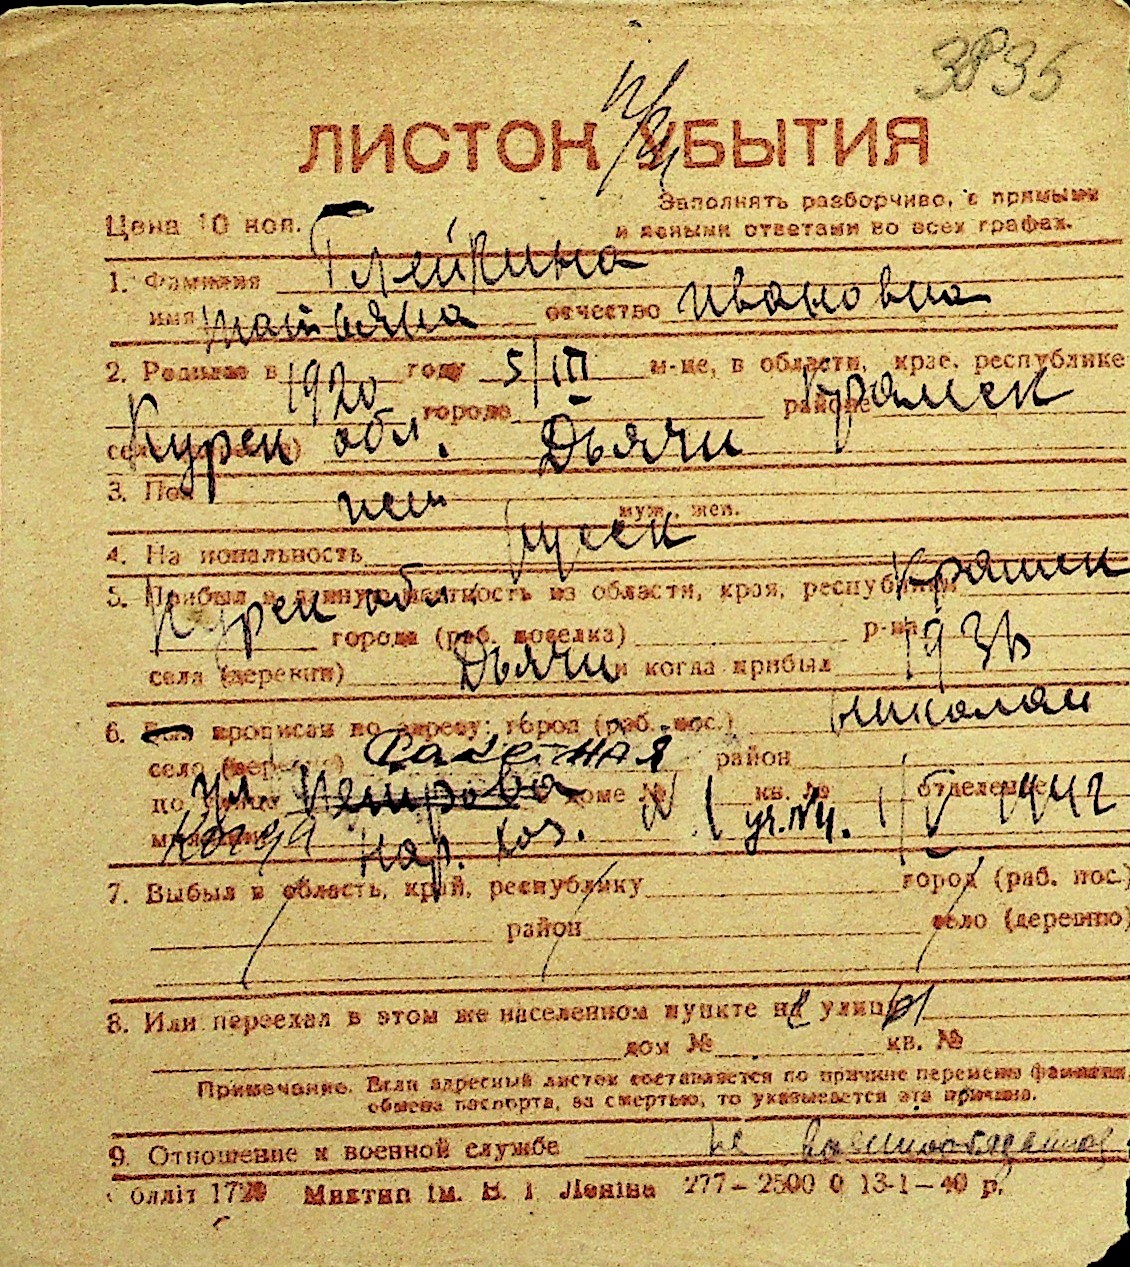 3835
ЛИСТОК УБЫТИЯ
Цена 10 коп.
Заполнять разборчиво, с прямыми
и ясными ответами во всех графах.
1. Фамилия Глейкина
имя Татьяна отчество Ивановна
2. Родилась в 1920 году 5/III м-це, в области, крае, республике
Курск обл. города районе Крамск
село Дьячи
3. Пол жен
муж., жен.
4. Национальность русск
5. Прибыл в данную местность из области, края, республики
Курск обл. Крамск
города (раб. поселка) р-на
села (деревни) Дьячи и когда прибыл 193
6. прописан по адресу: город (раб. пос.) Николаи
село (деревня) район
по улице Ул Петрова доме № 1 кв. № отделение
уч. №4.
нар. хоз.
7. Выбыл в область, край, республику город (раб. пос.)
район село (деревню)
8. Или переехал в этом же населенном пункте на улицу
дом № кв. №
Примечание. Если адресный листок составляется по причине перемены фамилии,
обмена паспорта, за смертью, то указывается эта причина.
9. Отношение к военной службе не военнообязанная
Миктип ім. В. І. Леніна 277—2500 0 13-1—40 р.